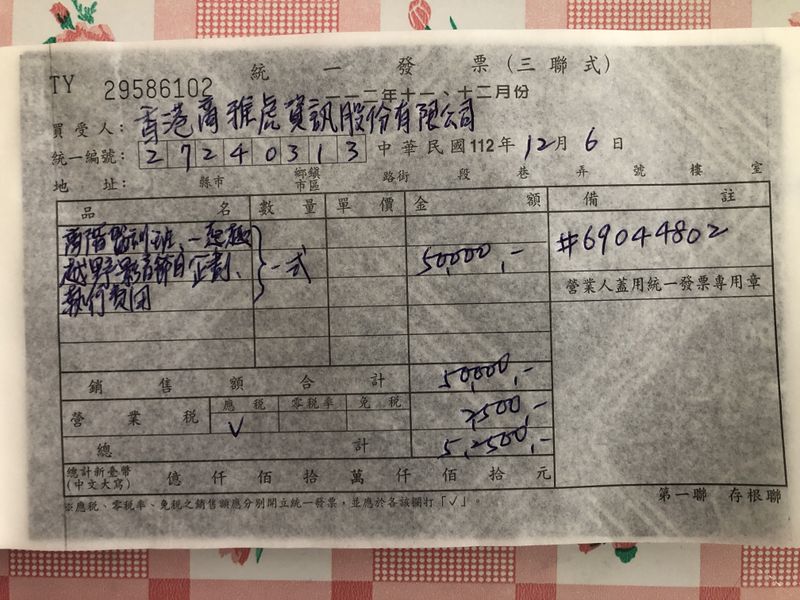 統一發票(三聯式)
TY 29586102
一一二年十一、十二月份
買受人:香港商雅虎資訊股份有限公司
統一編號:27240313 中華民國112年12月6日
地址: 縣市 鄉鎮市區 路街 段 巷 弄 號 樓 室
品名 數量 單價 金額 備註
班、一起
越野影音節目企劃、 一式 50,000,- #69044802
執行費用
營業人蓋用統一發票專用章
銷售額合計 50,000,-
營業稅 應稅 零稅率 免稅 2500,-
V
總計 5,2500,-
總計新臺幣
(中文大寫) 億 仟 佰 拾 萬 仟 佰 拾 元
※應稅、零稅率、免稅之銷售額應分別開立統一發票,並應於各該欄打「✓」。
第一聯 存根聯